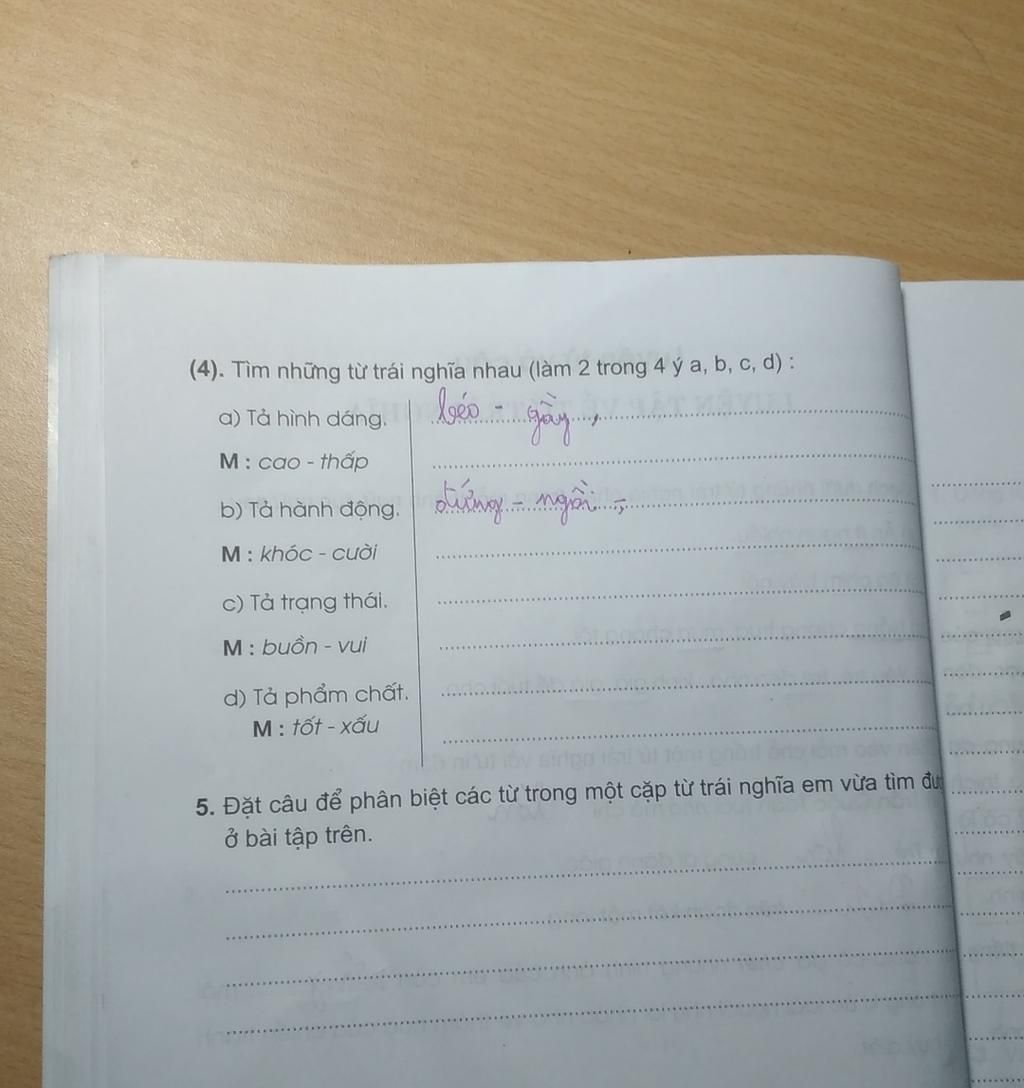 (4). Tìm những từ trái nghĩa nhau (làm 2 trong 4 ý a, b, c, d) :
a) Tả hình dáng. béo - gầy ,
M : cao - thấp
b) Tả hành động. đứng - ngồi ;
M : khóc - cười
c) Tả trạng thái.
M : buồn - vui
d) Tả phẩm chất.
M : tốt - xấu
5. Đặt câu để phân biệt các từ trong một cặp từ trái nghĩa em vừa tìm
ở bài tập trên.